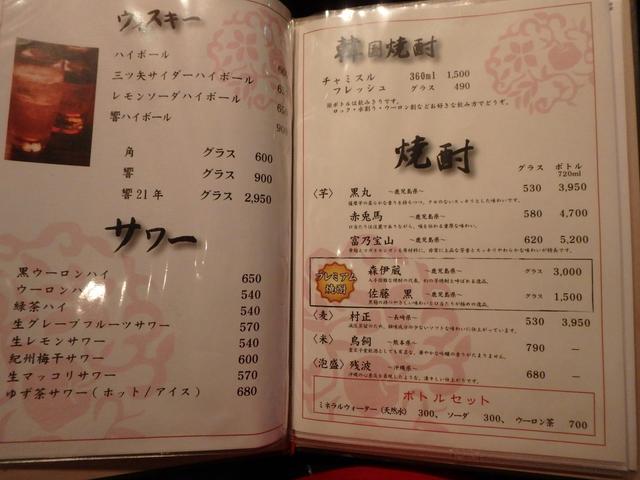 ウィスキー
ハイボール
三ツ矢サイダーハイボール
レモンソーダハイボール
響ハイボール 900
角 グラス 600
響 グラス 900
響21年 グラス 2,950
サワー
黒ウーロンハイ 650
ウーロンハイ 540
緑茶ハイ 540
生グレープフルーツサワー 570
生レモンサワー 540
紀州梅干サワー 600
生マッコリサワー 570
ゆず茶サワー(ホット/アイス) 680
韓国焼酎
チャミスル 360ml 1,500
フレッシュ グラス 490
※ボトルは飲みきりです。
ロック・水割り・ウーロン割などお好きな飲み方でどうぞ。
焼酎
グラス ボトル
720ml
〈芋〉 黒丸 ～鹿児島県～ 530 3,950
赤兎馬 ～鹿児島県～ 580 4,700
富乃宝山 ～鹿児島県～ 620 5,200
プレミアム
焼酎
森伊蔵 ～鹿児島県～ グラス 3,000
佐藤 黒 ～鹿児島県～ グラス 1,500
〈麦〉 村正 ～長崎県～ 530 3,950
〈米〉 鳥飼 ～熊本県～ 790 －
〈泡盛〉 残波 ～沖縄県～ 680 －
ボトルセット
ミネラルウォーター(天然水) 300、 ソーダ 300、 ウーロン茶 700